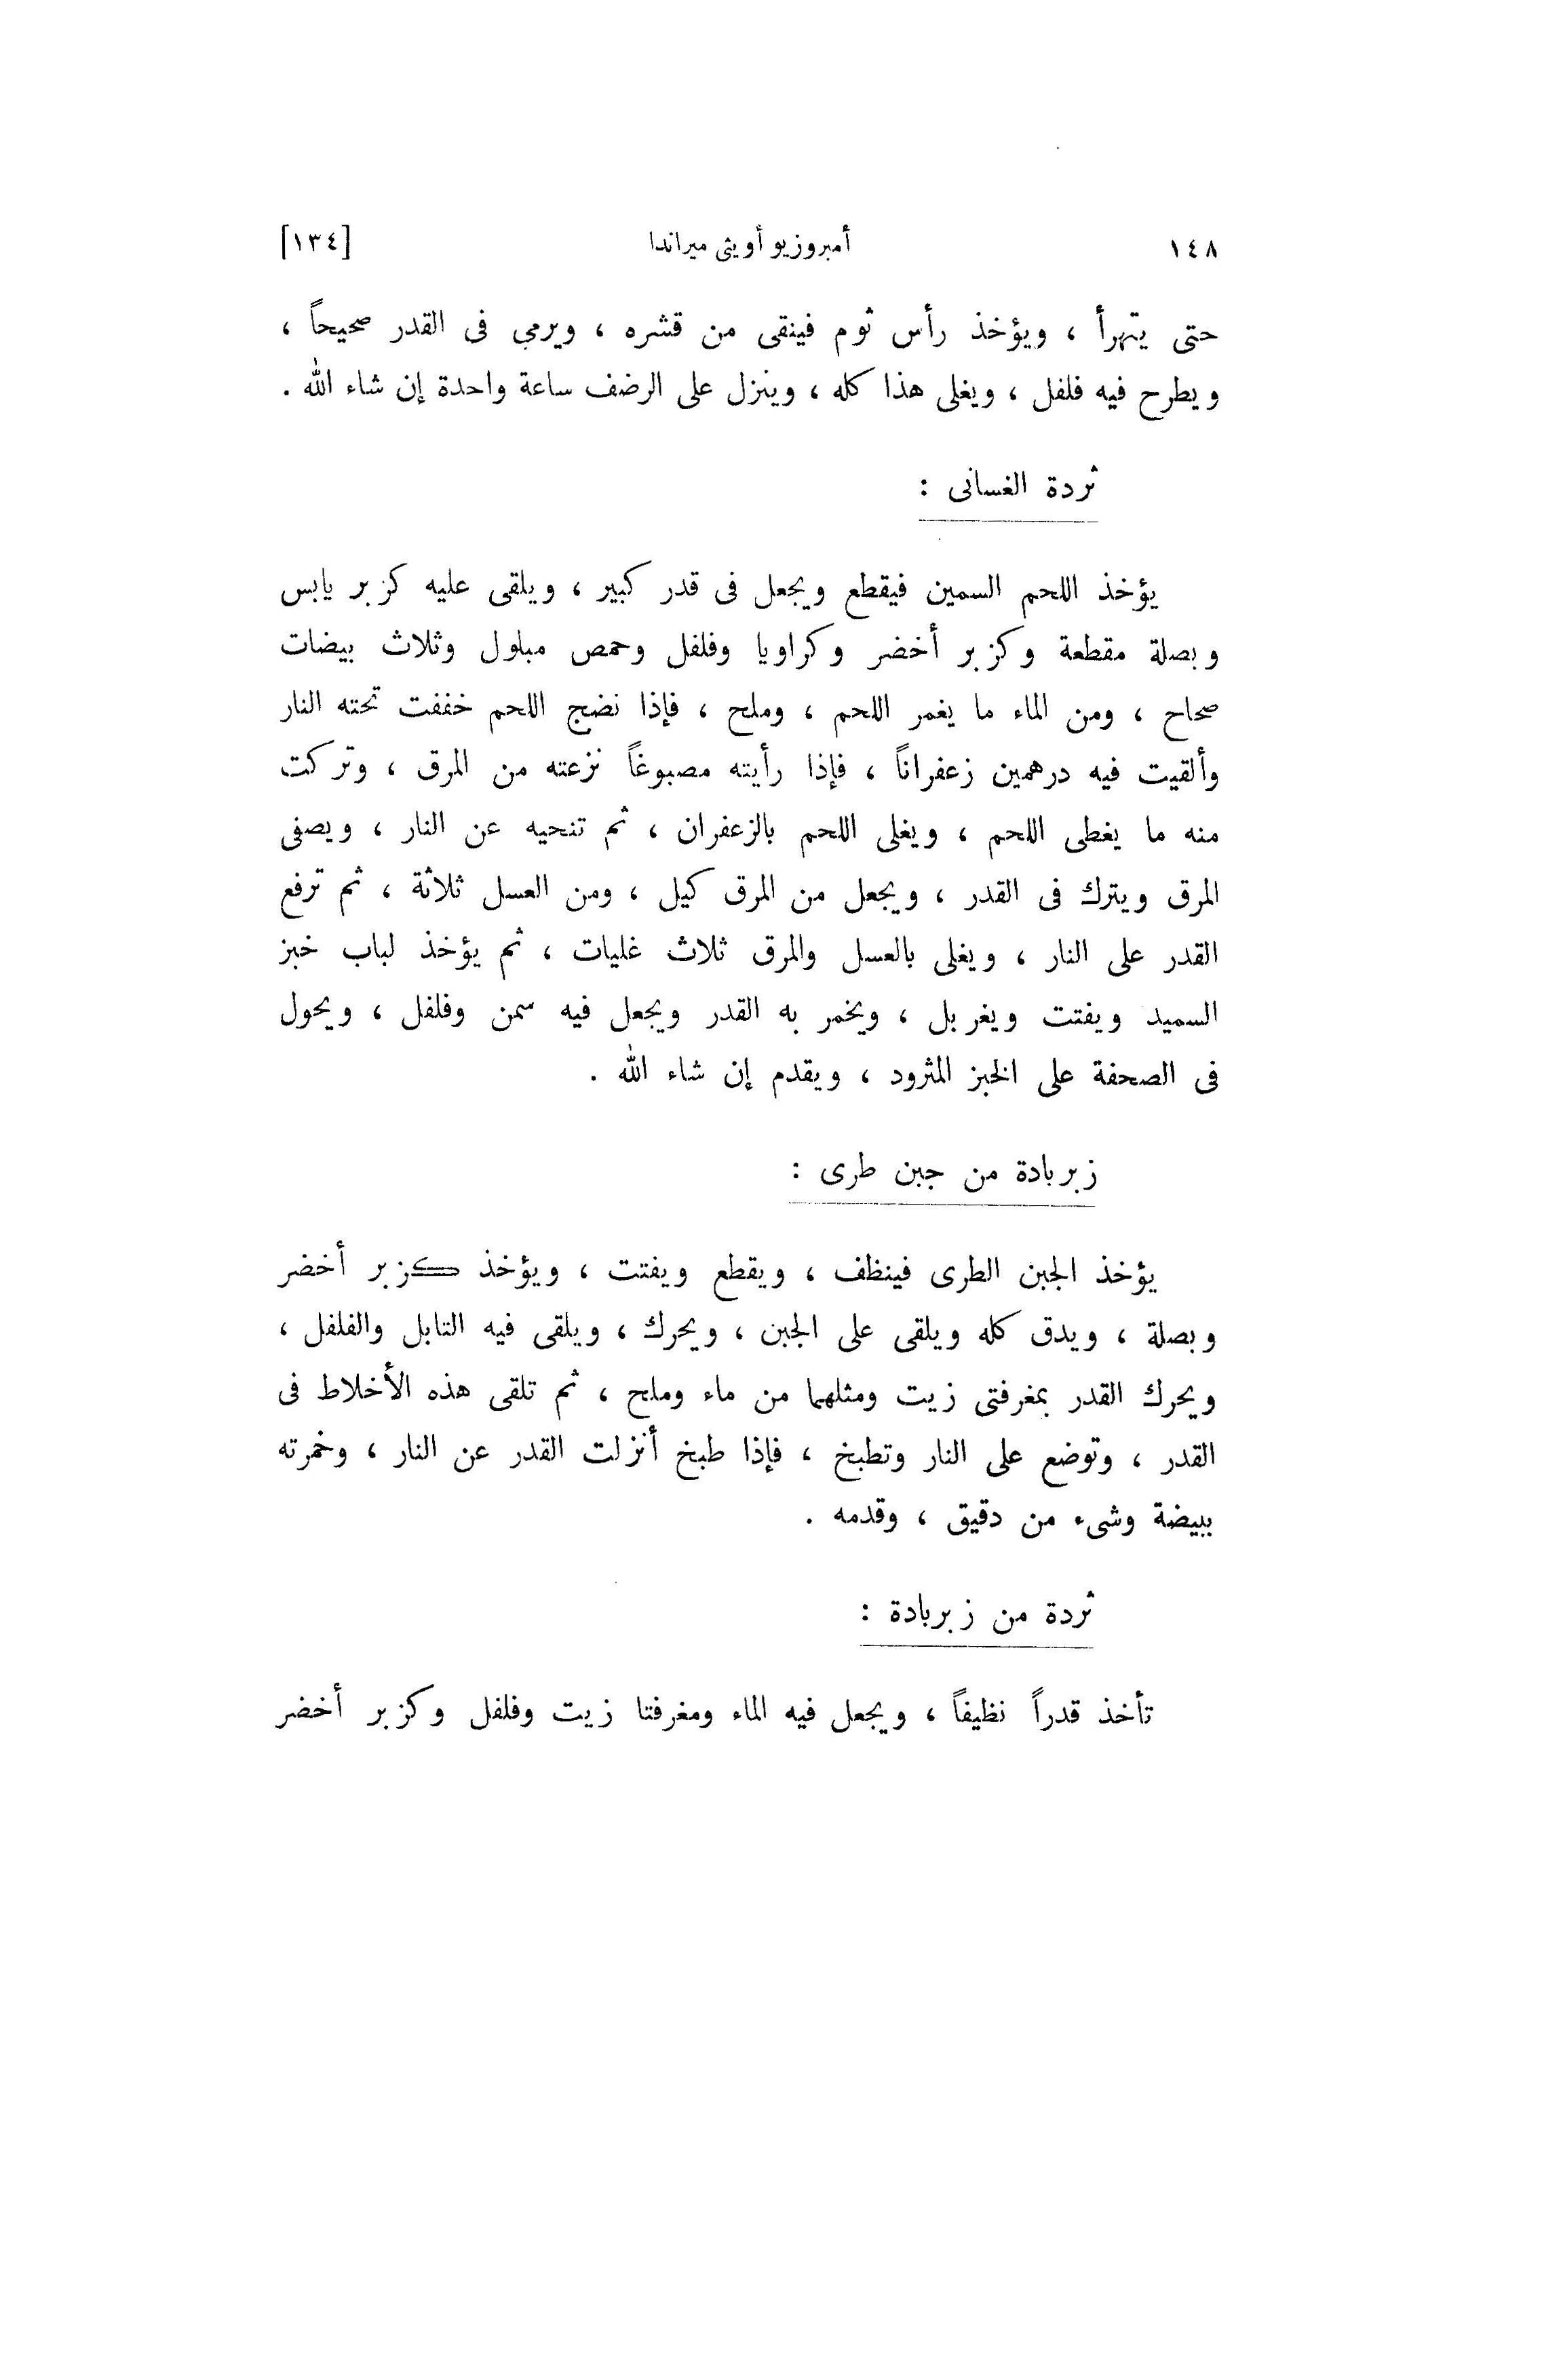 ١٤٨ أمبروزيو أويثى ميراندا [١٣٤]
حتى يتهرأ ، ويؤخذ رأس ثوم فينقى من قشره ، ويرمي فى القدر صحيحاً ،
ويطرح فيه فلفل ، ويغلى هذا كله ، وينزل على الرضف ساعة واحدة إن شاء الله .
ثردة الغسانى :
يؤخذ اللحم السمين فيقطع ويجعل فى قدر كبير ، ويلقى عليه كزبر يابس
وبصلة مقطعة وكزبر أخضر وكراويا وفلفل وحمص مبلول وثلاث بيضات
صحاح ، ومن الماء ما يغمر اللحم ، وملح ، فإذا نضج اللحم خففت تحته النار
وألقيت فيه درهمين زعفراناً ، فإذا رأيته مصبوغاً نزعته من المرق ، وتركت
منه ما يغطى اللحم ، ويغلى اللحم بالزعفران ، ثم تنحيه عن النار ، ويصفى
المرق ويترك فى القدر ، ويجعل من المرق كيل ، ومن العسل ثلاثة ، ثم ترفع
القدر على النار ، ويغلى بالعسل والمرق ثلاث غليات ، ثم يؤخذ لباب خبز
السميد ويفتت ويغربل ، ويخمر به القدر ويجعل فيه سمن وفلفل ، ويحول
فى الصحفة على الخبز المثرود ، ويقدم إن شاء الله .
زبربادة من جبن طرى :
يؤخذ الجبن الطرى فينظف ، ويقطع ويفتت ، ويؤخذ كزبر أخضر
وبصلة ، ويدق كله ويلقى على الجبن ، ويحرك ، ويلقى فيه التابل والفلفل ،
ويحرك القدر بمغرفتى زيت ومثلهما من ماء وملح ، ثم تلقى هذه الأخلاط فى
القدر ، وتوضع على النار وتطبخ ، فإذا طبخ أنزلت القدر عن النار ، وخمرته
ببيضة وشىء من دقيق ، وقدمه .
ثردة من زبربادة :
تأخذ قدراً نظيفاً ، ويجعل فيه الماء ومغرفتا زيت وفلفل وكزبر أخضر